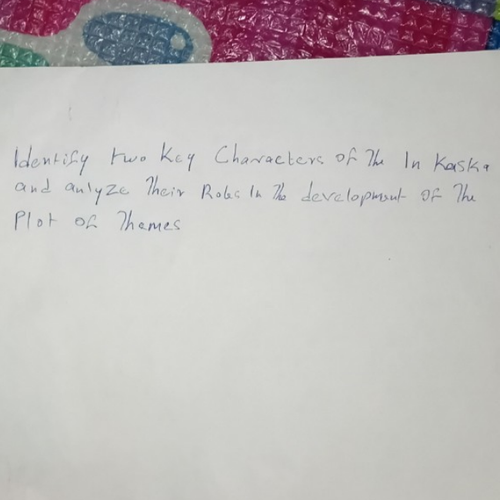 Identify two Key Characters of The In Kaska
and anlyze Their Roles In The development of The
Plot of Themes